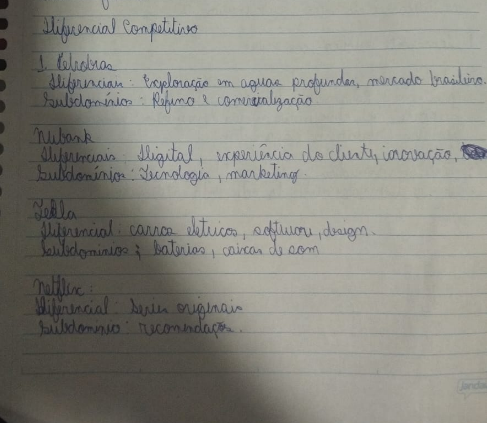 Diferencial Competitivo
1. Petrobras
Diferenciais: Exploração em aguas profundas, mercado brasileiro.
Subdomínios: Refino e comercialização
Nubank
Diferenciais: Digital, experiência do cliente, inovação,
Subdomínios: Tecnologia, marketing.
Tesla
Diferencial: carros eletricos, software, design.
Subdominios: baterias, caixas de som
Netflix:
Diferencial: Series originais
Subdominio: recomendação.